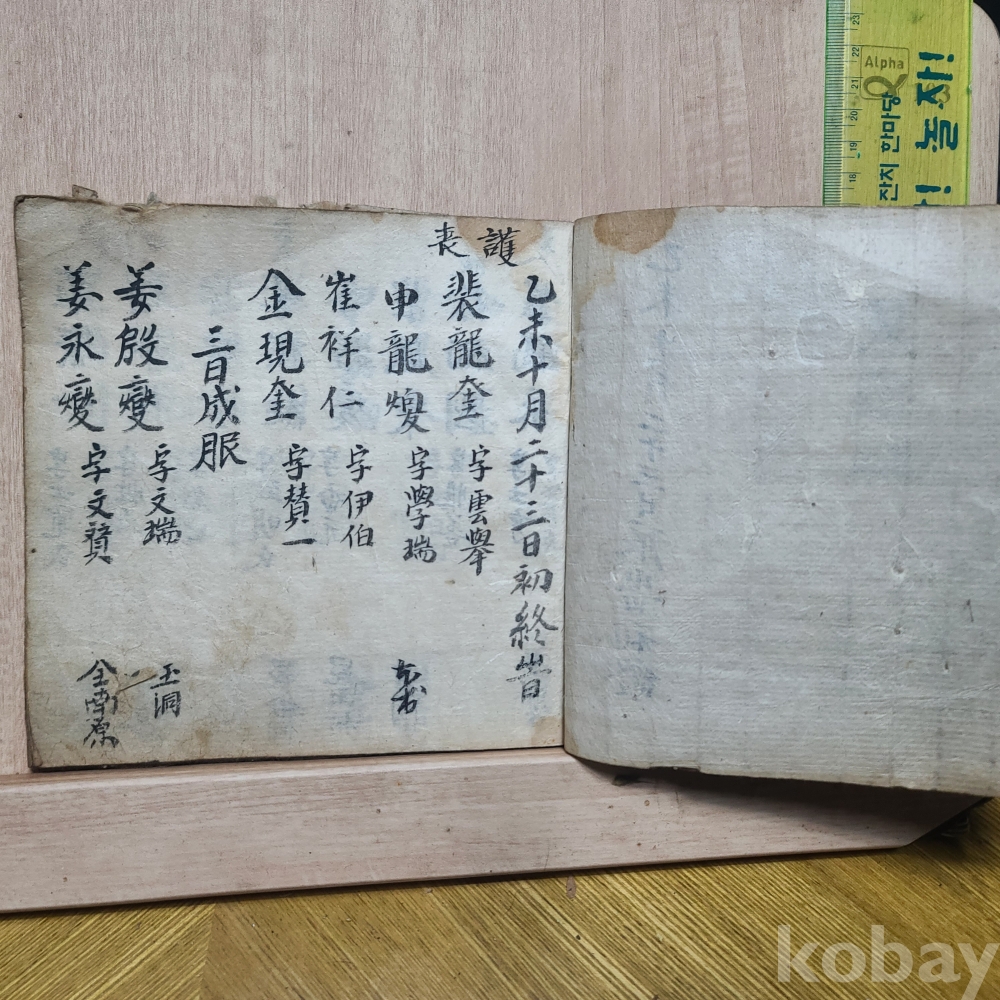 護喪
乙未十月二十三日初終時
裴龍奎 字雲擧
申龍燮 字學瑞
崔祥仁 字伊伯
金現奎 字賛一
三日成服
姜殷燮 字文瑞 玉洞
姜永燮 字文賢 全南原
Alpha
잔치 한마당
놀자!
18 19 20 21 22 23
kobay